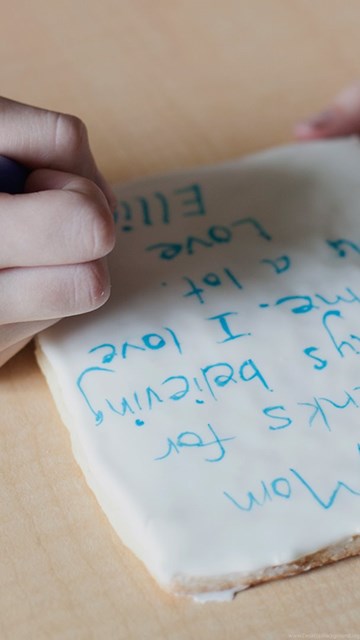 Mom
nks for
ys believing
me. I love
u a lot.
Love
Elli